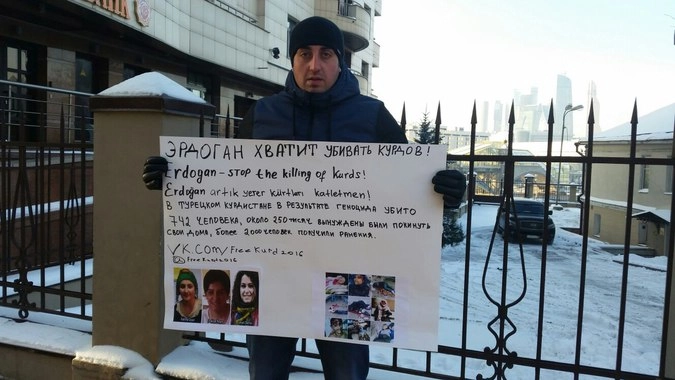 ЭРДОГАН ХВАТИТ УБИВАТЬ КУРДОВ!
Erdogan - stop the killing of kurds!
Erdoğan artık yeter kürtleri katletmen!
В ТУРЕЦКОМ КУРДИСТАНЕ В РЕЗУЛЬТАТЕ ГЕНОЦИДА УБИТО
742 ЧЕЛОВЕКА, ОКОЛО 250 ТЫСЯЧ ВЫНУЖДЕНЫ БЫЛИ ПОКИНУТЬ
СВОИ ДОМА, БОЛЕЕ 2000 ЧЕЛОВЕК ПОЛУЧИЛИ РАНЕНИЯ.
VK.Com/FreeKurd2016
FreeKurd2016